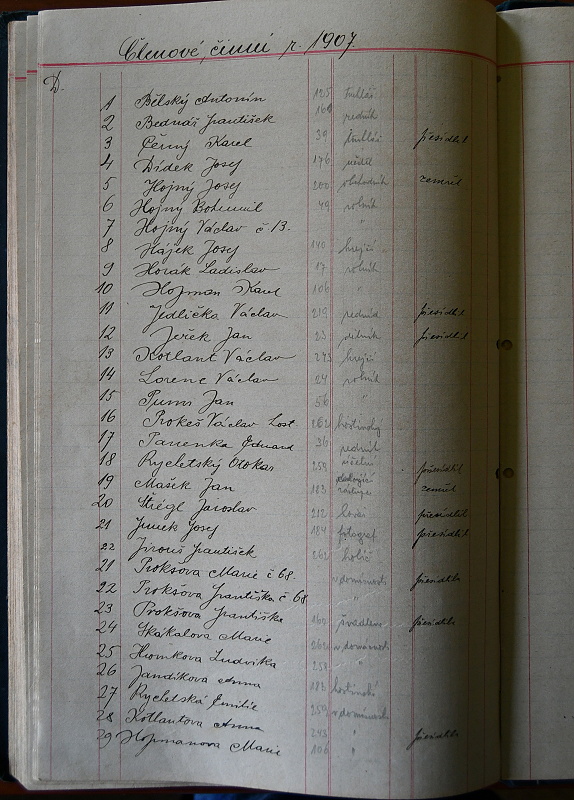 Členové činní r. 1907.
D.
1 Bělský Antonín 125 truhlář
2 Bednář František 168 zedník
3 Černý Karel 39 truhlář přesídlil
4 Dídek Josef 176
5 Hojný Josef 200 obchodník zemřel
6 Hojný Bohumil 49 rolník
7 Hojný Václav č 13.
8 Hájek Josef 140 krejčí
9 Horák Ladislav 17 rolník
10 Hofman Karel 106 "
11 Jedlička Václav 219 zedník přesídlil
12 Ježek Jan 23 dělník přesídlil
13 Kotlant Václav 243 krejčí
14 Lorenc Václav 24 rolník
15 Jan 56 "
16 Prokeš Václav host. 262 hostinský
17 Panenka Eduard 36 zedník
18 Rycletský Otokar 259 účetní přesídlil
19 Mašek Jan 183 zemřel
20 Stiegl Jaroslav 212 přesídlil
21 Josef 184 fotograf přesídlil
22 Jirouš František 262 holič
21 Prokšova Marie č 68. v domácnosti přesídlila
22 Prokšova Františka č. 68 "
23 Prokšova Františka 160 švadlena přesídlila
24 Skákalova Marie 262 v domácnosti
25 Hromkova Ludvika 258 "
26 Jandíkova Anna 182 hostinská
27 Rycletská Emilie 259 v domácnosti
28 Kotlantova Anna 243 " přesídlila
29 Hofmanova Marie 106 "